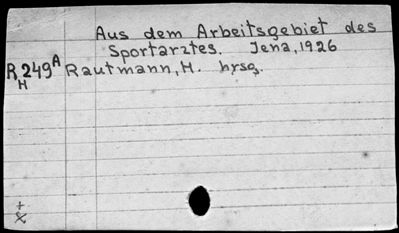 Aus dem Arbeitsgebiet des
Sportarztes. Jena, 1926
R 249A Rautmann, H. hrsg.
H
+
X